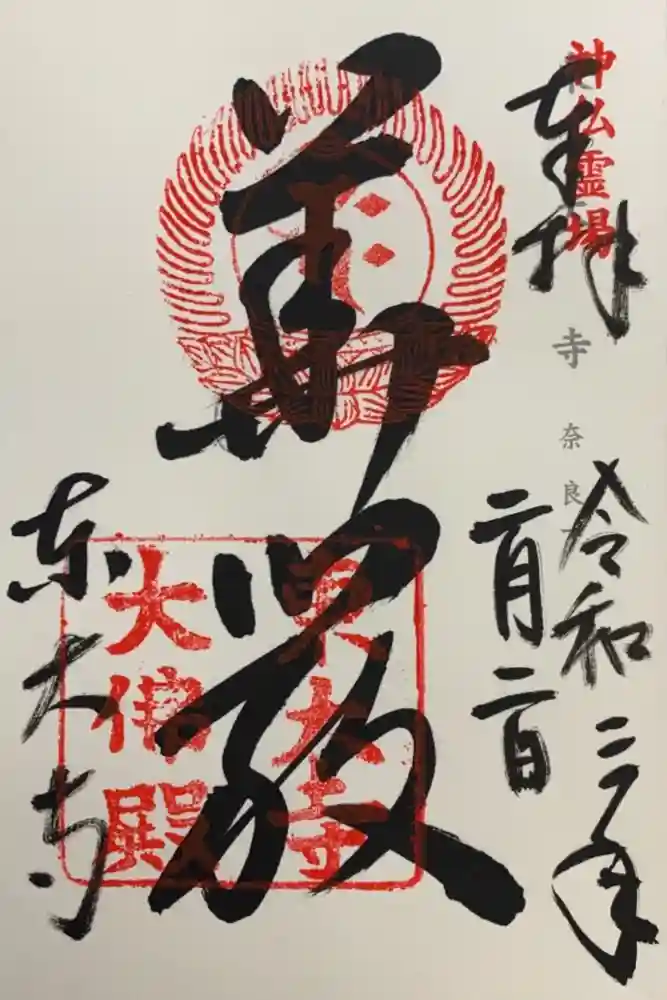 神仏霊場
奉拝
寺 奈良
令和三年
二月二日
華嚴
東大寺
大佛殿
東大寺